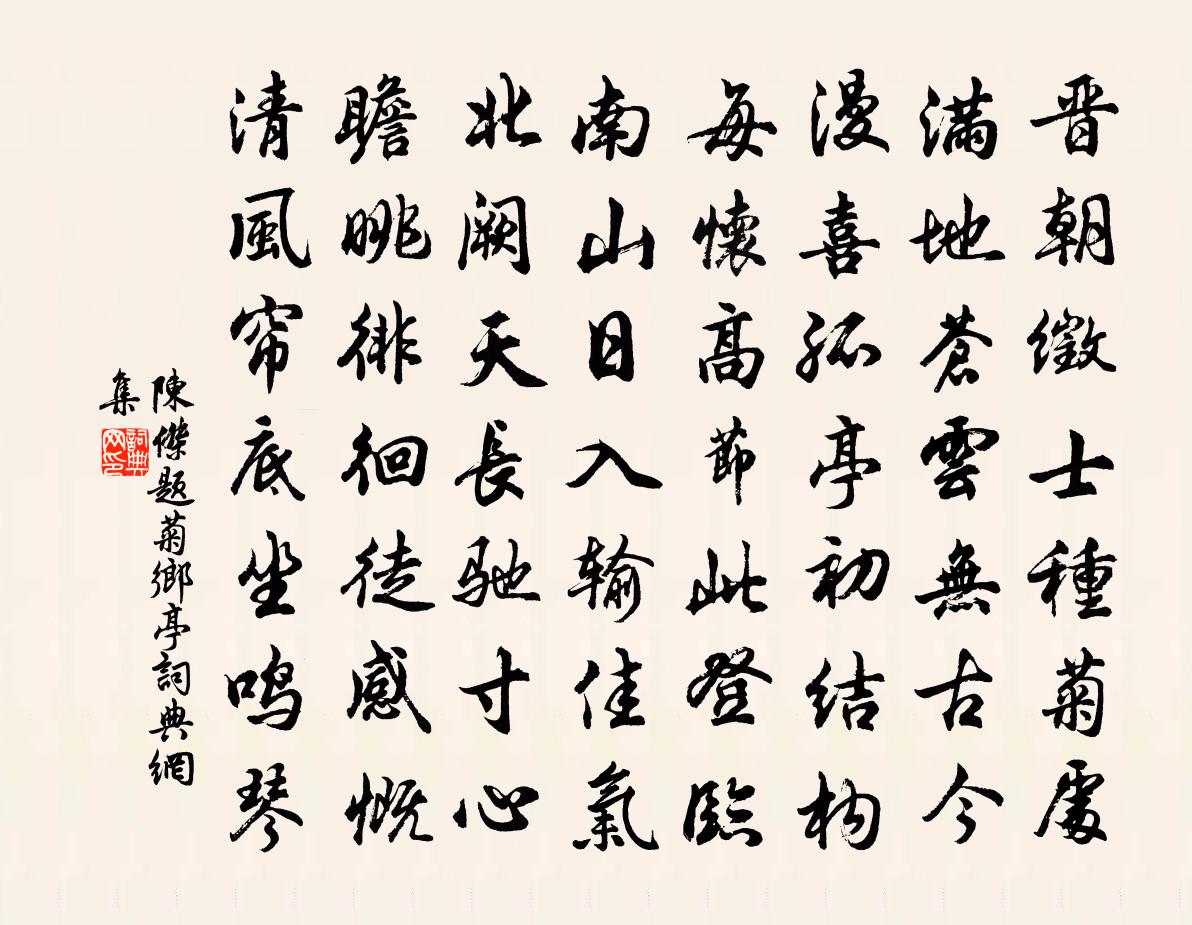 晋朝徵士種菊處
滿地蒼雲無古今
漫喜孤亭初結构
每懷高節此登臨
南山日入输佳氣
北阙天長驰寸心
瞻眺徘徊徒感慨
清風帘底坐鸣琴
陳傑题菊鄉亭詞典網
集
詞典
网印